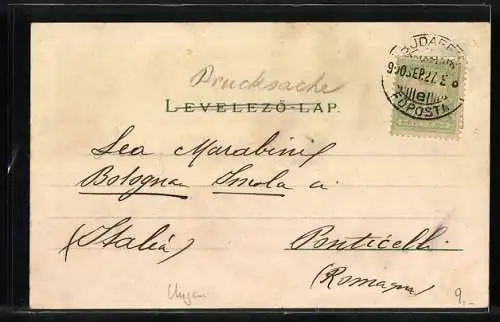 Drucksache
LEVELEZŐ-LAP.
BUDAPEST
900 SEP. 27.
FŐPOSTA
Lea Marabini
Bologna Imola a
(Italia)
Ponticelli
(Romagna
Ungarn
9,-